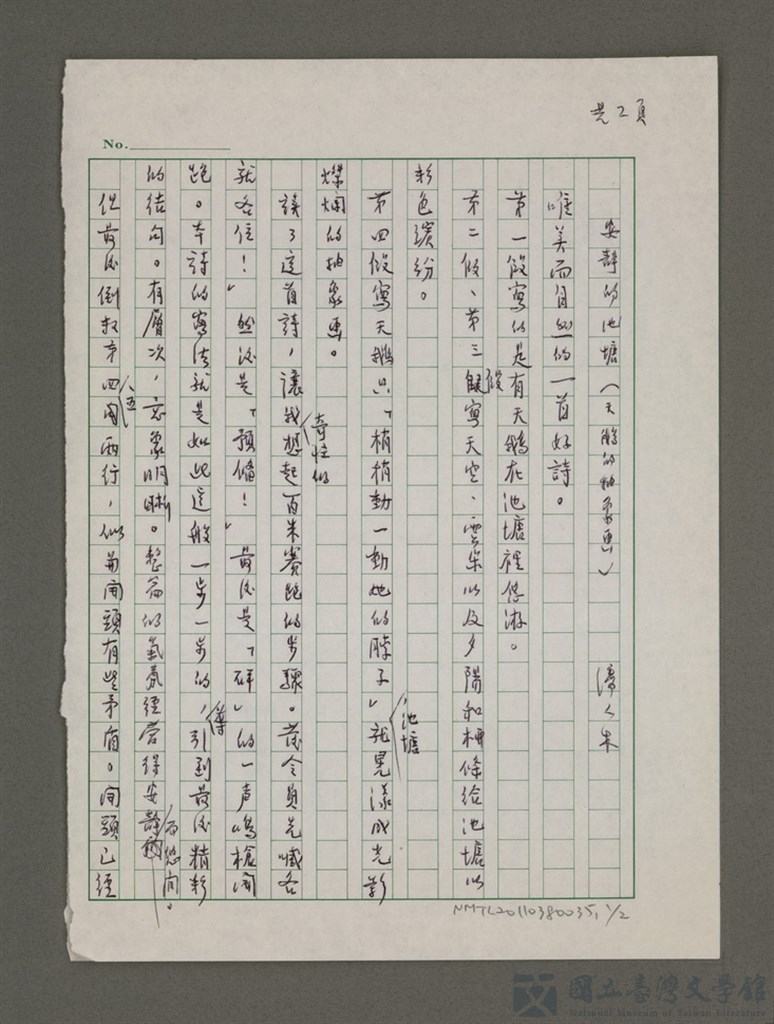 共2頁
No.
安靜的池塘(天鵝的抽象畫)
唯美而自然的一首好詩。
第一段寫的是有天鵝在池塘裡悠游。
第二段、第三段寫天空、雲朵以及夕陽和柳條給池塘以
彩色繽紛。
第四段寫天鵝只「稍稍動一動她的脖子」池塘就晃漾成光影
燦爛的抽象畫。
讀了這首詩,讓我奇怪的想起百米賽跑的步驟。發令員先喊各
就各位!」然後是「預備!」最後是「砰」的一声鳴槍開
跑。本詩的寫法就是如此這般一步一步的,引導到最後精彩
的結局。有層次,意象明晰。整首的氣氛經營得安靜而悠閒。
但最後倒敘第四、五兩行,似前開頭有些矛盾。開頭已經
NMTL20110380035, 1/2
國立臺灣文學館
National Museum of Taiwan Literature